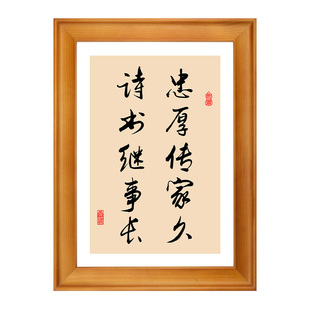 忠厚传家久
诗书继事长